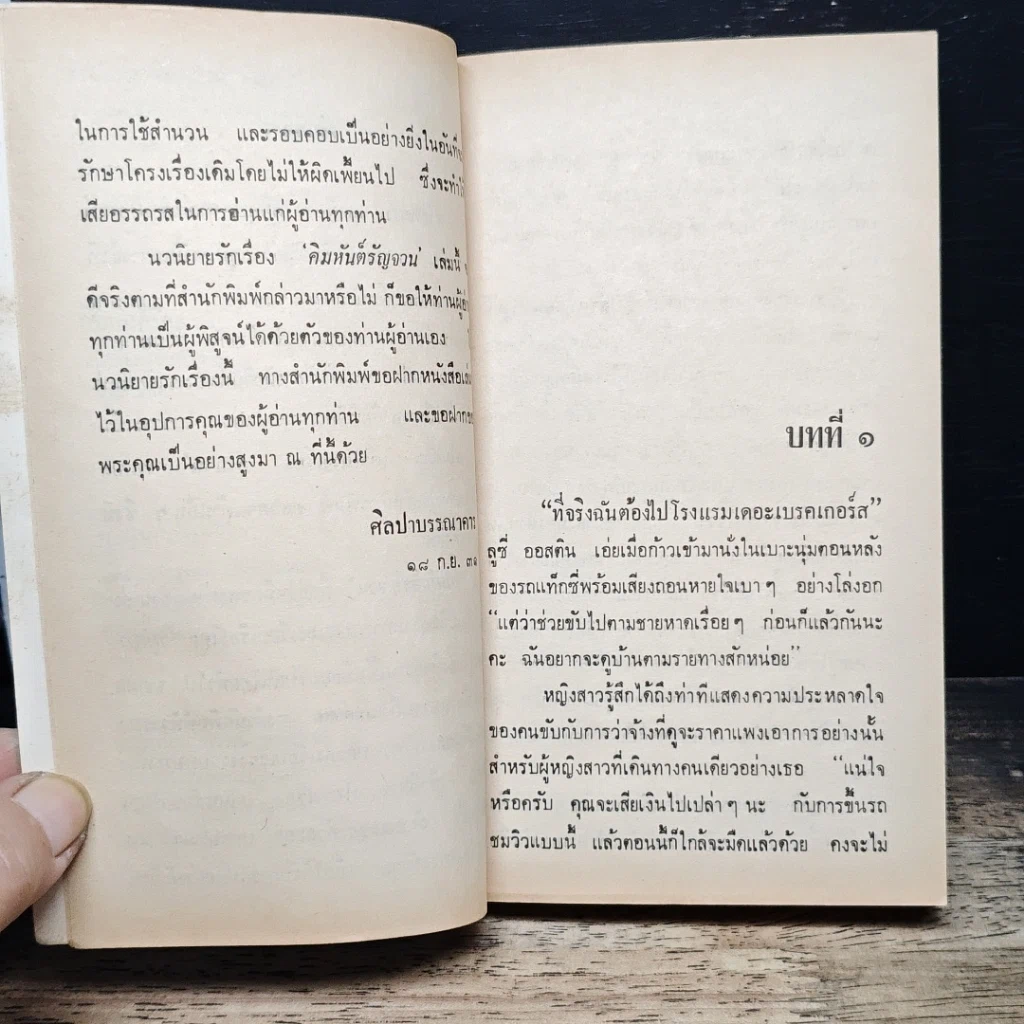 ในการใช้สำนวน และรอบคอบเป็นอย่างยิ่งในอันที่จะ
รักษาโครงเรื่องเดิมโดยไม่ให้ผิดเพี้ยนไป ซึ่งจะทำให้
เสียอรรถรสในการอ่านแก่ผู้อ่านทุกท่าน
นวนิยายรักเรื่อง ‘คิมหันต์รัญจวน’ เล่มนี้
ดีจริงตามที่สำนักพิมพ์กล่าวมาหรือไม่ ก็ขอให้ท่านผู้อ่าน
ทุกท่านเป็นผู้พิสูจน์ได้ด้วยตัวของท่านผู้อ่านเอง
นวนิยายรักเรื่องนี้ ทางสำนักพิมพ์ขอฝากหนังสือเล่ม
ไว้ในอุปการคุณของผู้อ่านทุกท่าน และขอฝาก
พระคุณเป็นอย่างสูงมา ณ ที่นี้ด้วย
ศิลปาบรรณาคาร
๑๘ ก.ย. ๓๑
บทที่ ๑
“ที่จริงฉันต้องไปโรงแรมเดอะเบรคเกอร์ส”
ลูซี่ ออสติน เอ่ยเมื่อก้าวเข้ามานั่งในเบาะนุ่มตอนหลัง
ของรถแท็กซี่พร้อมเสียงถอนหายใจเบา ๆ อย่างโล่งอก
“แต่ว่าช่วยขับไปตามชายหาดเรื่อย ๆ ก่อนก็แล้วกันนะ
คะ ฉันอยากจะดูบ้านตามรายทางสักหน่อย”
หญิงสาวรู้สึกได้ถึงท่าทีแสดงความประหลาดใจ
ของคนขับกับการว่าจ้างที่ดูจะราคาแพงเอาการอย่างนั้น
สำหรับผู้หญิงสาวที่เดินทางคนเดียวอย่างเธอ “แน่ใจ
หรือครับ คุณจะเสียเงินไปเปล่า ๆ นะ กับการขึ้นรถ
ชมวิวแบบนี้ แล้วตอนนี้ก็ใกล้จะมืดแล้วด้วย คงจะไม่